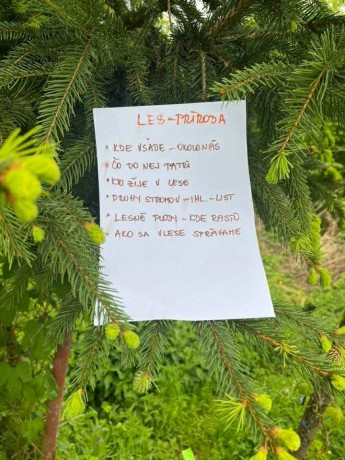 LES - PRÍRODA
• KDE VŠADE - OKOLO NÁS
• ČO DO NEJ PATRÍ
• KTO ŽIJE V LESE
• DRUHY STROMOV - IHL. - LIST
• LESNÉ PLODY - KDE RASTÚ
• AKO SA V LESE SPRÁVAME